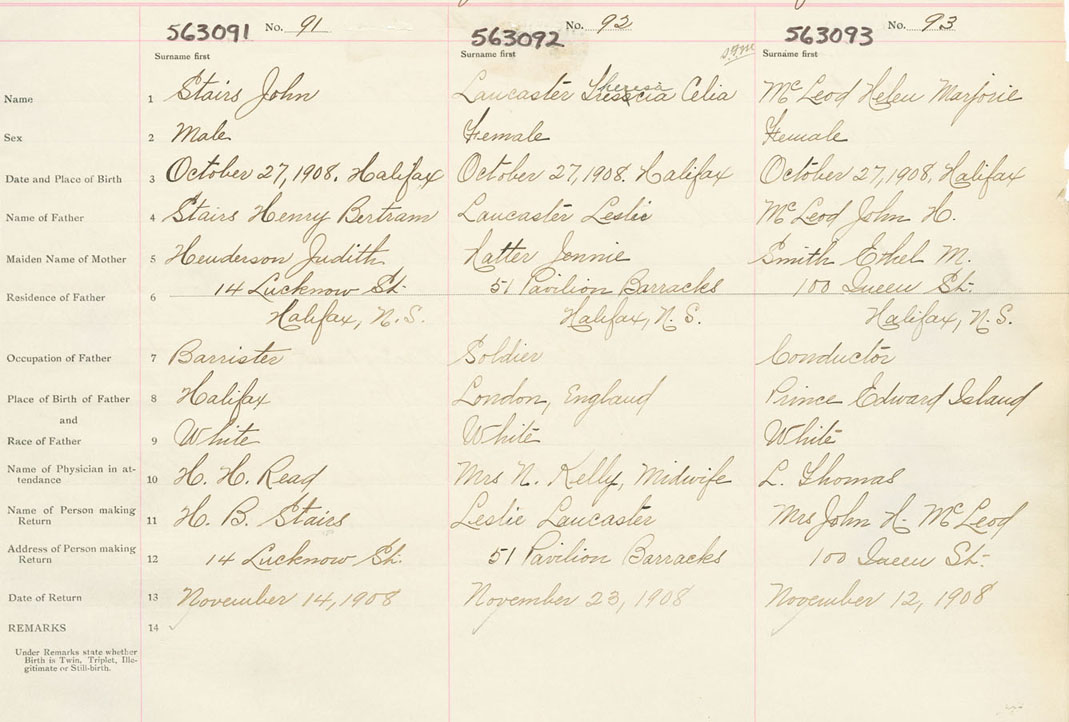 563091 No. 91 563092 No. 92 563093 No. 93
Surname first Surname first Surname first
Name 1 Stairs John Lancaster Theresa Celia McLeod Helen Marjorie
Sex 2 Male Female Female
Date and Place of Birth 3 October 27, 1908. Halifax October 27, 1908. Halifax October 27, 1908. Halifax
Name of Father 4 Stairs Henry Bertram Lancaster Leslie McLeod John H.
Maiden Name of Mother 5 Henderson Judith Hatter Jennie Smith Ethel M.
Residence of Father 6 14 Lucknow St. 51 Pavilion Barracks 100 Queen St.
Halifax, N.S. Halifax, N.S. Halifax, N.S.
Occupation of Father 7 Barrister Soldier Conductor
Place of Birth of Father 8 Halifax London, England Prince Edward Island
and
Race of Father 9 White White White
Name of Physician in at-
tendance 10 H. H. Read Mrs N. Kelly, Midwife L. Thomas
Name of Person making
Return 11 H. B. Stairs Leslie Lancaster Mrs John H. McLeod
Address of Person making
Return 12 14 Lucknow St. 51 Pavilion Barracks 100 Queen St.
Date of Return 13 November 14, 1908 November 23, 1908 November 12, 1908
REMARKS 14
Under Remarks state whether
Birth is Twin, Triplet, Ille-
gitimate or Still-birth.